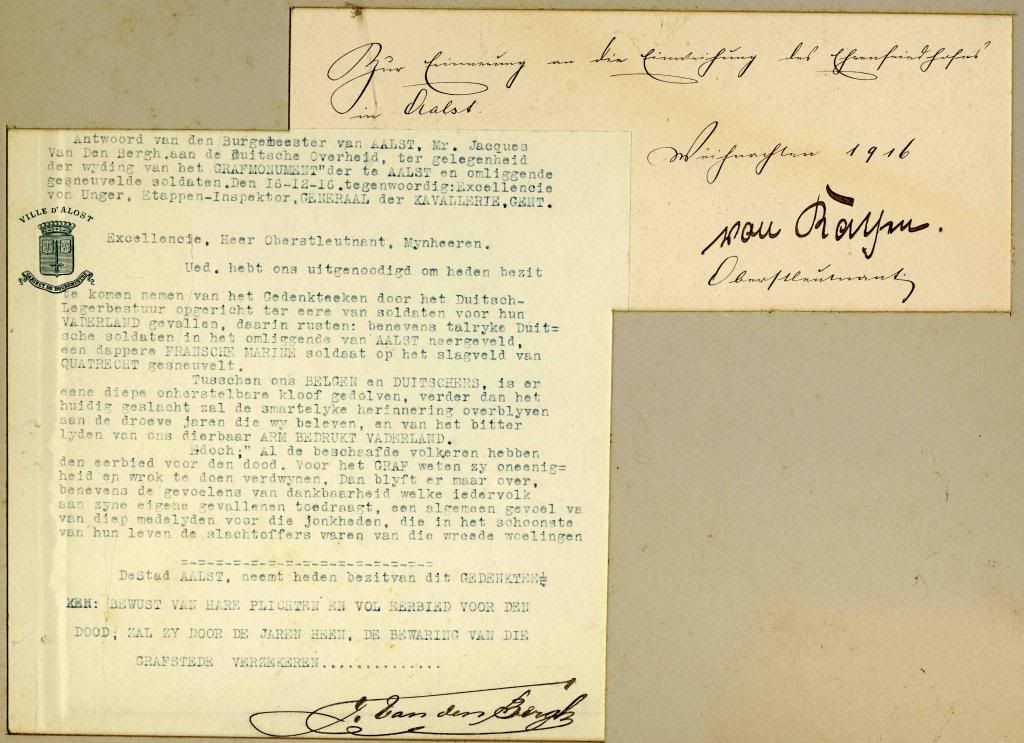 Zur Erinnerung an die Einweihung des Ehrenfriedhofes
in Aalst.
Weihnachten 1916
von
Oberstleutnant
Antwoord van den Burgemeester van AALST, Mr. Jacques
Van Den Bergh.aan de Duitsche Overheid, ter gelegenheid
der wyding van het GRAFMONUMENT"der te AALST en omliggende
gesneuvelde soldaten.Den 16-12-16.tegenwoordig:Excellencie
von Unger, Etappen-Inspektor,GENERAAL der KAVALLERIE,GENT.
VILLE D'ALOST
CABINET DU BOURGMESTRE
Excellencie, Heer Oberstleutnant, Mynheeren.
Ued. hebt ons uitgenoodigd om heden bezit
te komen nemen van het Gedenkteeken door het Duitsch-
Legerbestuur opgericht ter eere van soldaten voor hun
VADERLAND gevallen, daarin rusten: benevens talryke Duit=
sche soldaten in het omliggende van AALST neergeveld,
een dappere FRANSCHE MARINE soldaat op het slagveld van
QUATRECHT gesneuvelt.
Tusschen ons BELGEN en DUITSCHERS, is er
eene diepe onherstelbare kloof gedolven, verder dan het
huidig geslacht zal de smartelyke herinnering overblyven
aan de droeve jaren die wy beleven, en van het bitter
lyden van ons dierbaar ARM BEDRUKT VADERLAND.
Edoch;" Al de beschaafde volkeren hebben
den eerbied voor den dood. Voor het GRAF weten zy oneenig=
heid en wrok te doen verdwynen, Dan blyft er maar over,
benevens de gevoelens van dankbaarheid welke iedervolk
aan zyne eigene gevallenen toedraagt, een algemeen gevoel va
van diep medelyden voor die jonkheden, die in het schoonste
van hun leven de slachtoffers waren van die wreede woelingen
=-=-=-=-=-=-=-=-=-=-=-=-=-=-=
DeStad AALST, neemt heden bezitvan dit GEDENKTEE=
KEN: BEWUST VAN HARE PLICHTEN EN VOL EERBIED VOOR DEN
DOOD; ZAL ZY DOOR DE JAREN HEEN, DE BEWARING VAN DIE
GRAFSTEDE VERZEKEREN..............
J. Van den Bergh